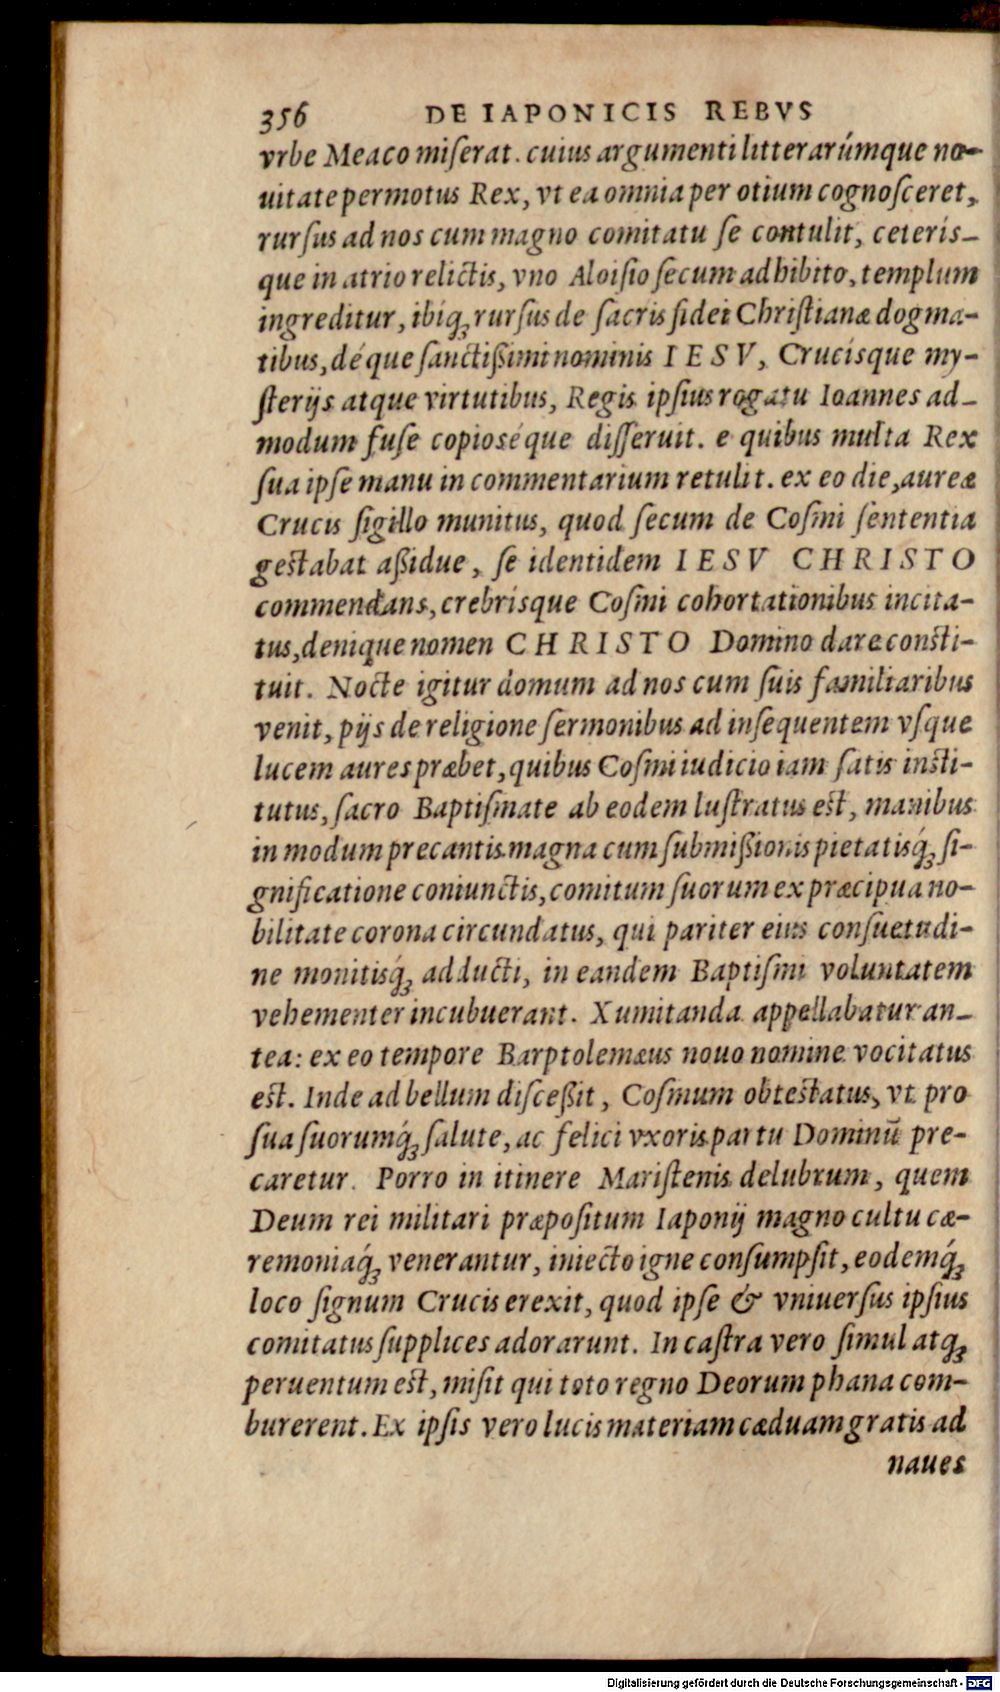 356 DE IAPONICIS REBVS
vrbe Meaco miſerat. cuius argumenti litterarúmque no-
uitate permotus Rex, vt ea omnia per otium cognoſceret,
rurſus ad nos cum magno comitatu ſe contulit, ceteris-
que in atrio relictis, vno Aloiſio ſecum adhibito, templum
ingreditur, ibíq; rurſus de ſacris fidei Chriſtianæ dogma-
tibus, déque ſanctißimi nominis IESV, Crucísque my-
ſterijs atque virtutibus, Regis ipſius rogatu Ioannes ad-
modum fuſe copioséque diſſeruit. e quibus multa Rex
ſua ipſe manu in commentarium retulit. ex eo die, aureæ
Crucis ſigillo munitus, quod ſecum de Coſmi ſententia
geſtabat aßidue, ſe identidem IESV CHRISTO
commendans, crebrísque Coſmi cohortationibus incita-
tus, denique nomen CHRISTO Domino dare conſti-
tuit. Nocte igitur domum ad nos cum ſuis familiaribus
venit, pijs de religione ſermonibus ad inſequentem vſque
lucem aures præbet, quibus Coſmi iudicio iam ſatis inſti-
tutus, ſacro Baptiſmate ab eodem luſtratus eſt, manibus
in modum precantis magna cum ſubmißionis pietatisq́; ſi-
gnificatione coniunctis, comitum ſuorum ex præcipua no-
bilitate corona circundatus, qui pariter eius conſuetudi-
ne monitisq́; adducti, in eandem Baptiſmi voluntatem
vehementer incubuerant. Xumitanda appellabatur an-
tea: ex eo tempore Barptolemæus nouo nomine vocitatus
eſt. Inde ad bellum diſceßit, Coſmum obteſtatus, vt pro
ſua ſuorumq́; ſalute, ac felici vxoris partu Dominū pre-
caretur. Porro in itinere Mariſtenis delubrum, quem
Deum rei militari præpoſitum Iaponij magno cultu cæ-
remoniaq́; venerantur, iniecto igne conſumpſit, eodemq́;
loco ſignum Crucis erexit, quod ipſe & vniuerſus ipſius
comitatus ſupplices adorarunt. In caſtra vero ſimul atq;
peruentum eſt, miſit qui toto regno Deorum phana com-
burerent. Ex ipſis vero lucis materiam cæduam gratis ad
naues
Digitalisierung gefördert durch die Deutsche Forschungsgemeinschaft - DFG